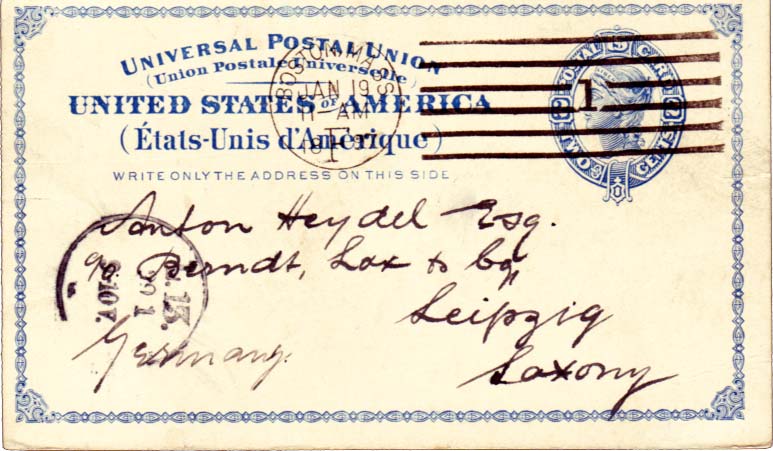 UNIVERSAL POSTAL UNION
(Union Postale Universelle)
UNITED STATES OF AMERICA
(États-Unis d'Amérique)
WRITE ONLY THE ADDRESS ON THIS SIDE
BOSTON, MASS.
JAN 19
11-AM
F
1
POSTAL CARD
TWO CENTS
Anton Heydel Esq.
c/o Berndt, Lax & Co
Leipzig
Saxony
Germany.